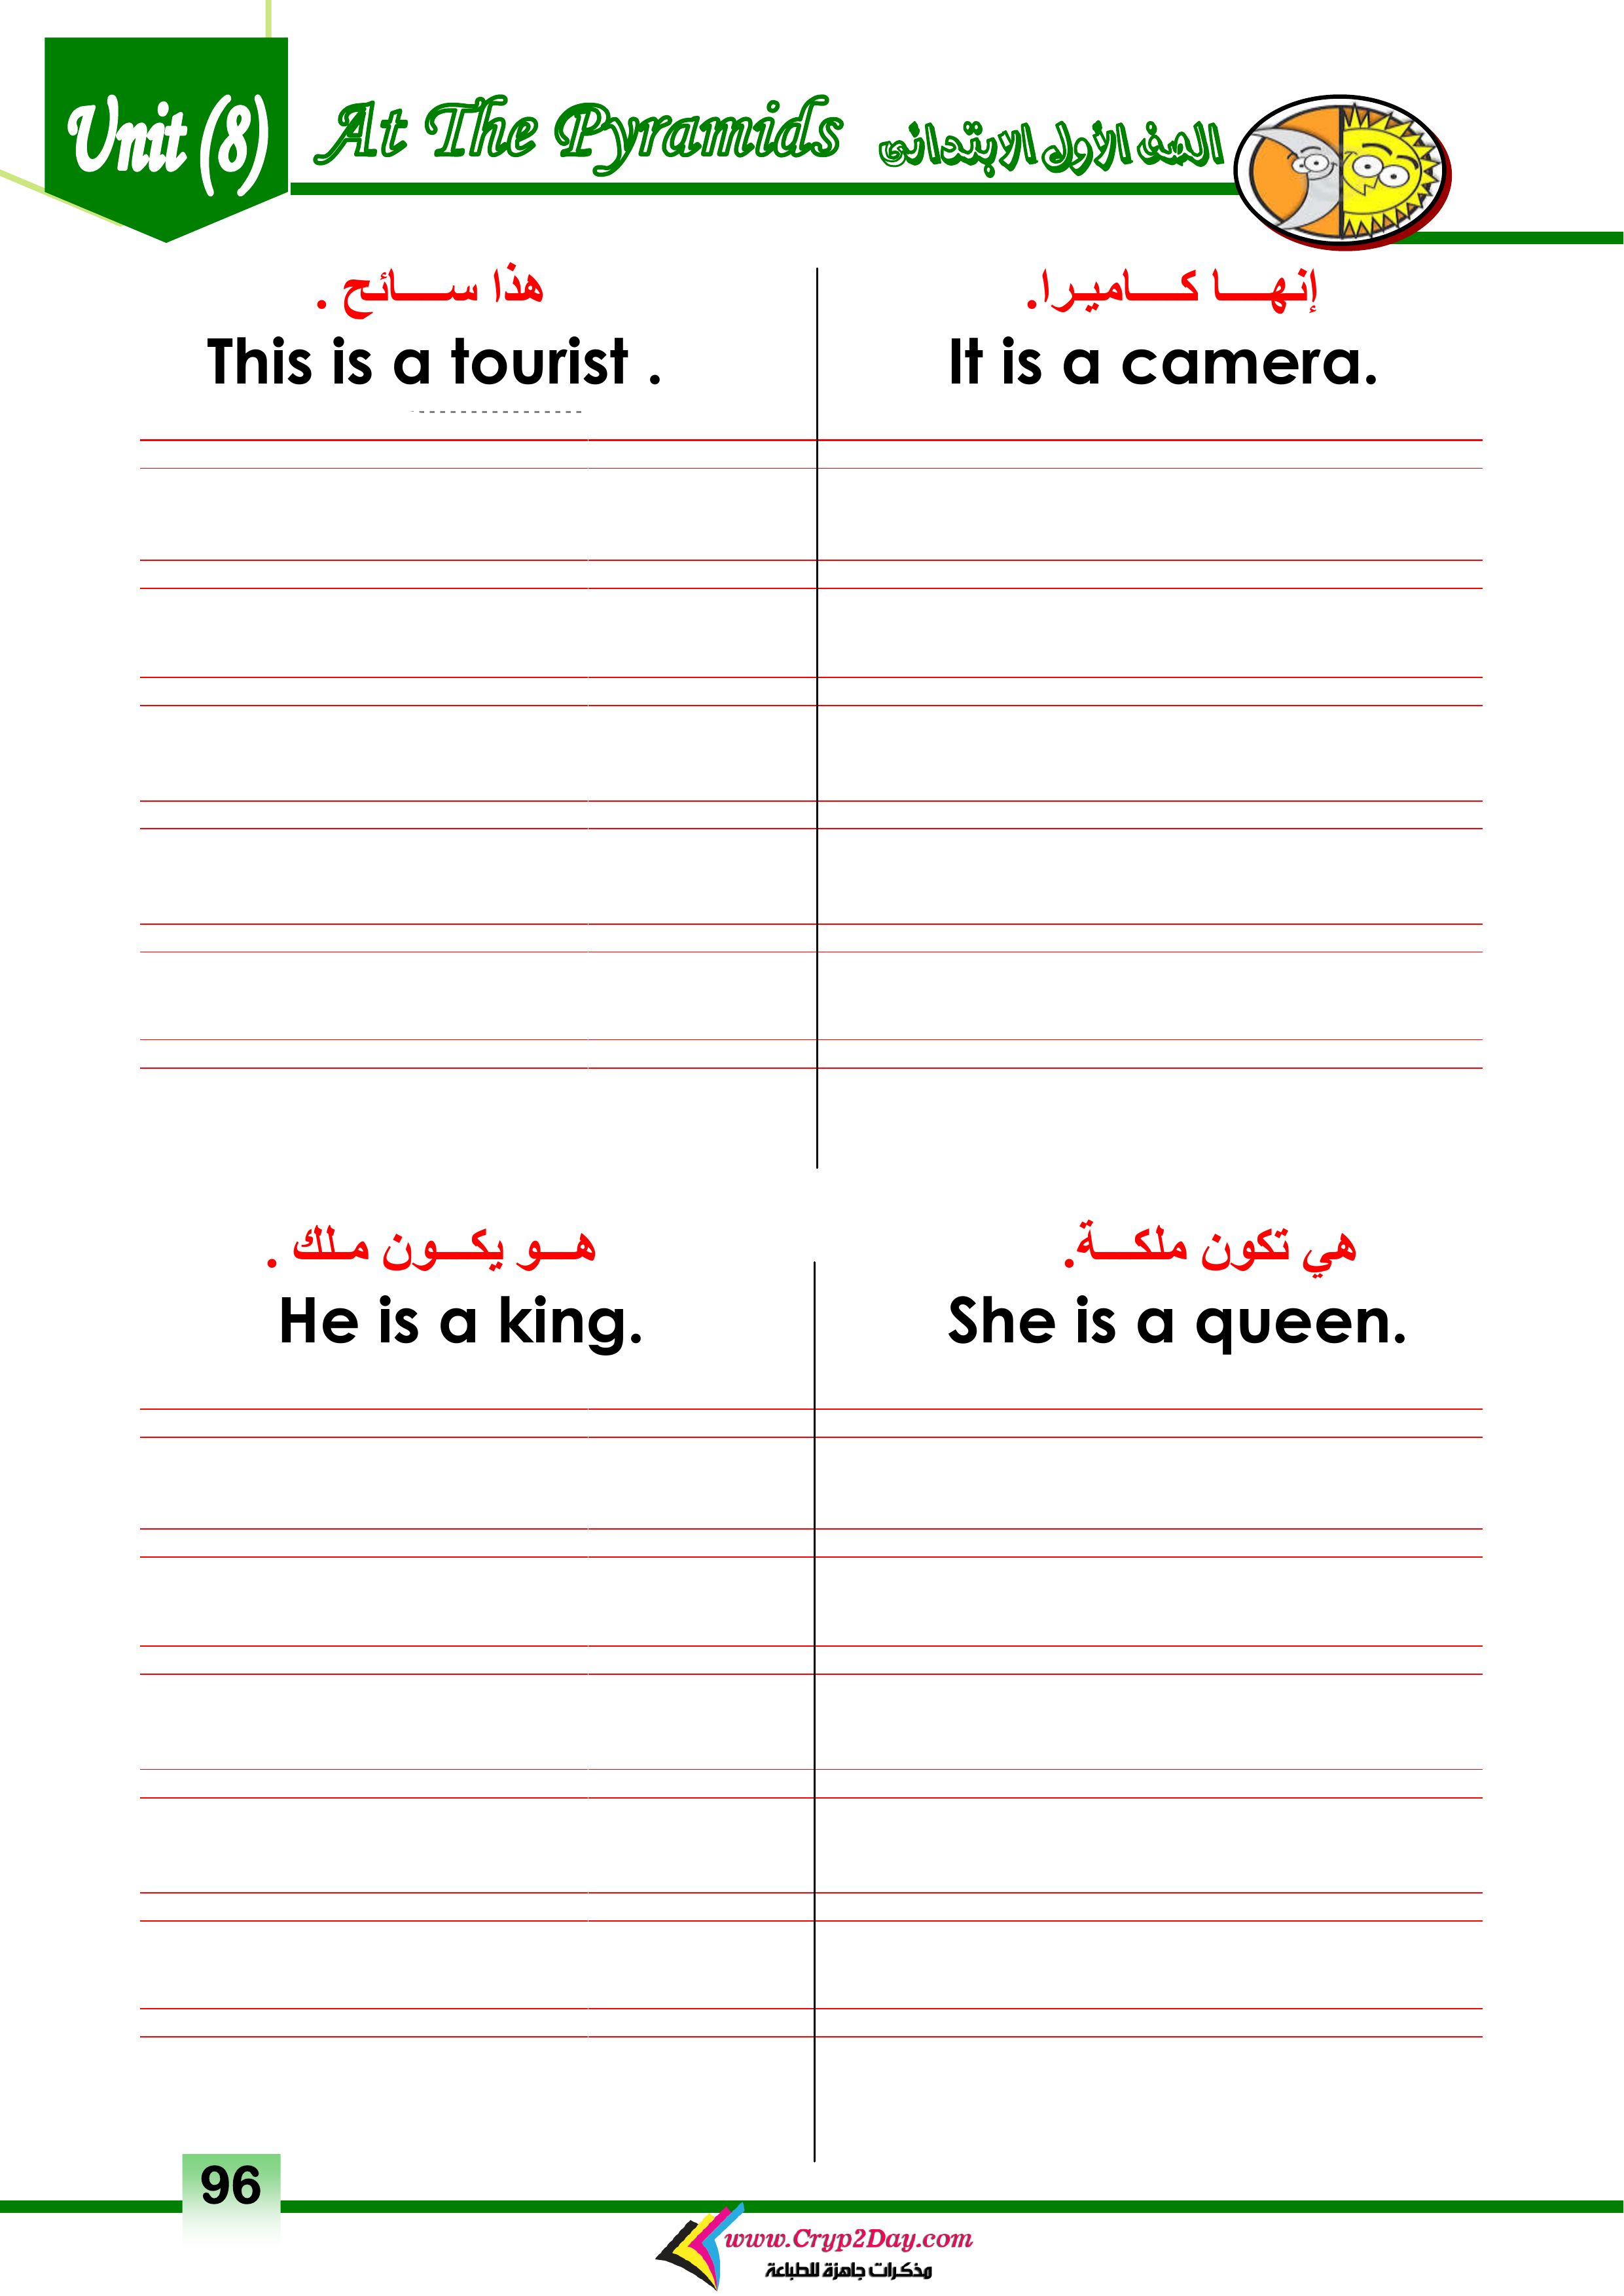 Unit (8)
At The Pyramids الصف الأول الابتدائى
هذا سـائح .
This is a tourist .
إنـهـا كـاميـرا.
It is a camera.
هـو يكـون مـلك .
He is a king.
هي تكون ملكـة.
She is a queen.
96
www.Cryp2Day.com
مذكرات جاهزة للطباعة